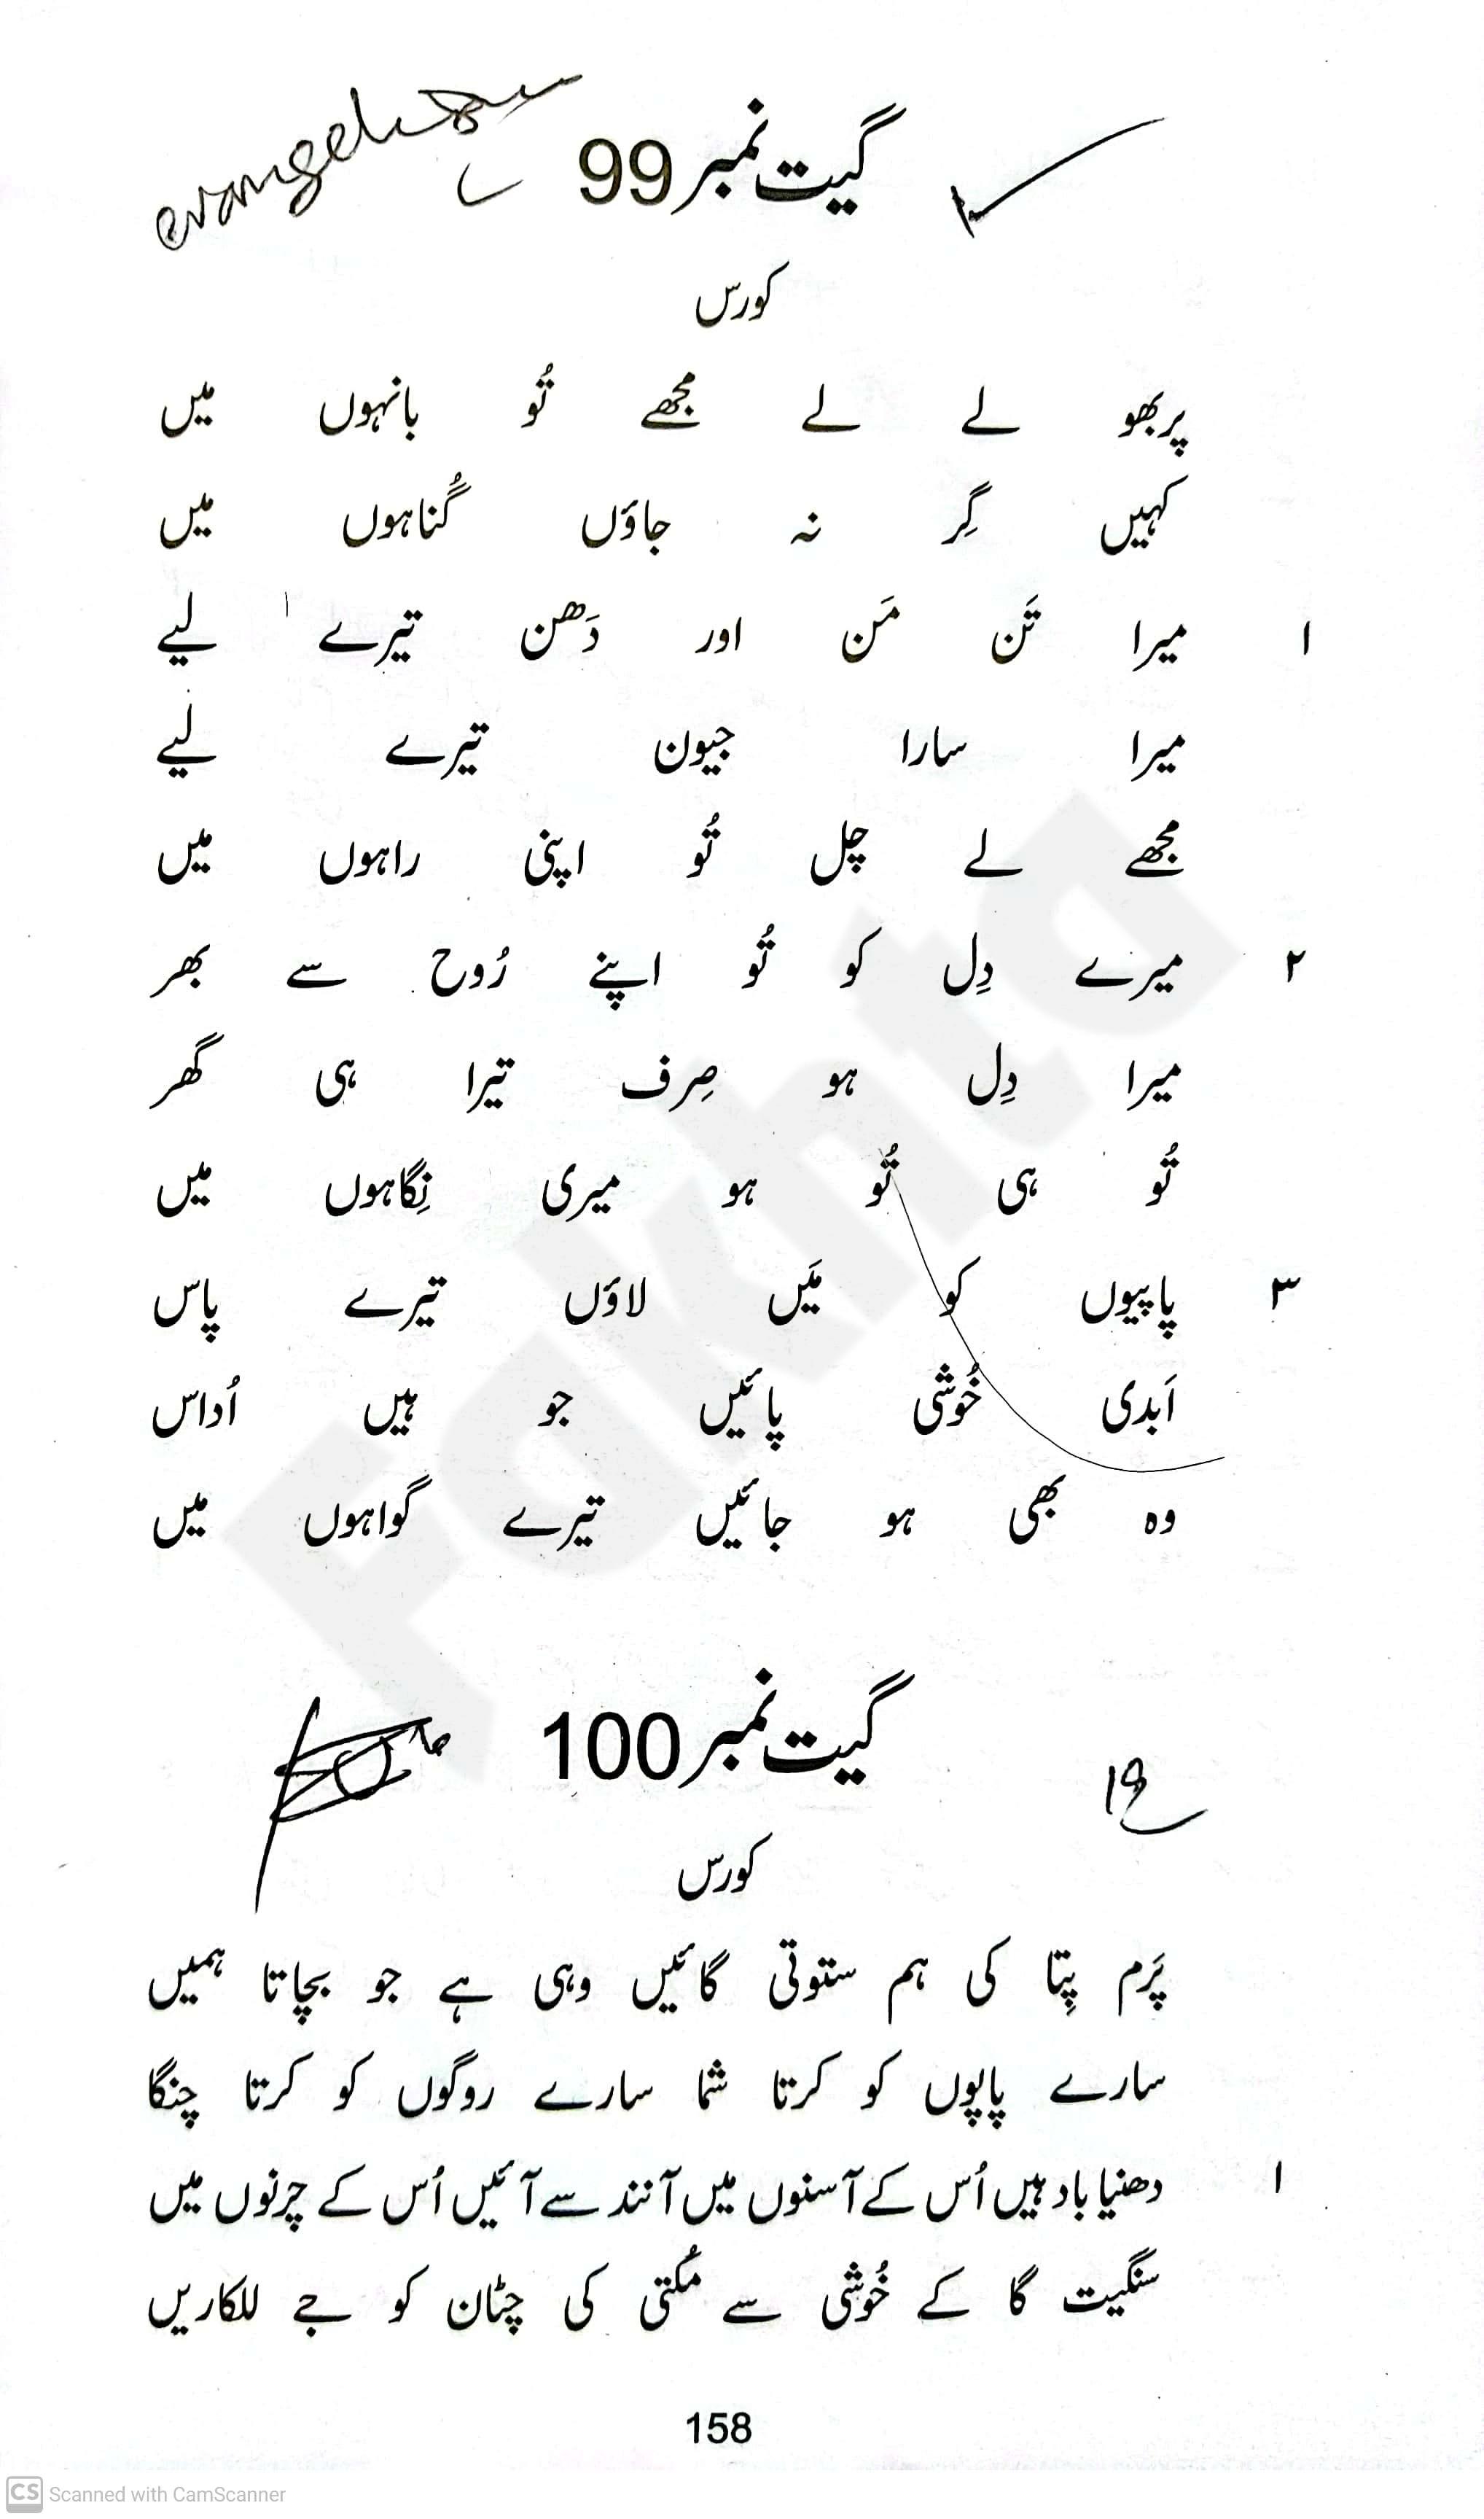 گیت نمبر 99
کورس
پربھو لے لے مجھے تُو بانہوں میں
کہیں گِر نہ جاؤں گُناہوں میں
۱ میرا تَن مَن اور دَھن تیرے لیے
میرا سارا جیون تیرے لیے
مجھے لے چل تُو اپنی راہوں میں
۲ میرے دِل کو تُو اپنے رُوح سے بھر
میرا دِل ہو صِرف تیرا ہی گھر
تُو ہی تُو ہو میری نِگاہوں میں
۳ پاپیوں کو مَیں لاؤں تیرے پاس
اَبدی خُوشی پائیں جو ہیں اُداس
وہ بھی ہو جائیں تیرے گواہوں میں
گیت نمبر 100
19
کورس
پَرم پِتا کی ہم ستوتی گائیں وہی ہے جو بچاتا ہمیں
سارے پاپوں کو کرتا شما سارے روگوں کو کرتا چنگا
۱ دھنیا باد ہیں اُس کے آسنوں میں آنند سے آئیں اُس کے چرنوں میں
سنگیت گا کے خُوشی سے مُکتی کی چٹان کو جے للکاریں
158
CS Scanned with CamScanner
Fakhta